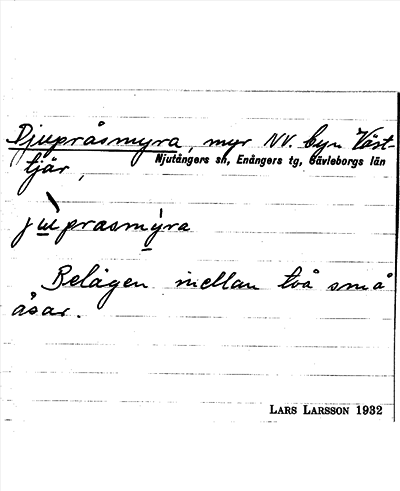 Djupråsmyra, myr NV. byn Väst-
tjär,
Njutångers sn, Enångers tg, Gävleborgs län
jùprasmy̆ra
Belägen mellan två små
åsar.
LARS LARSSON 1932